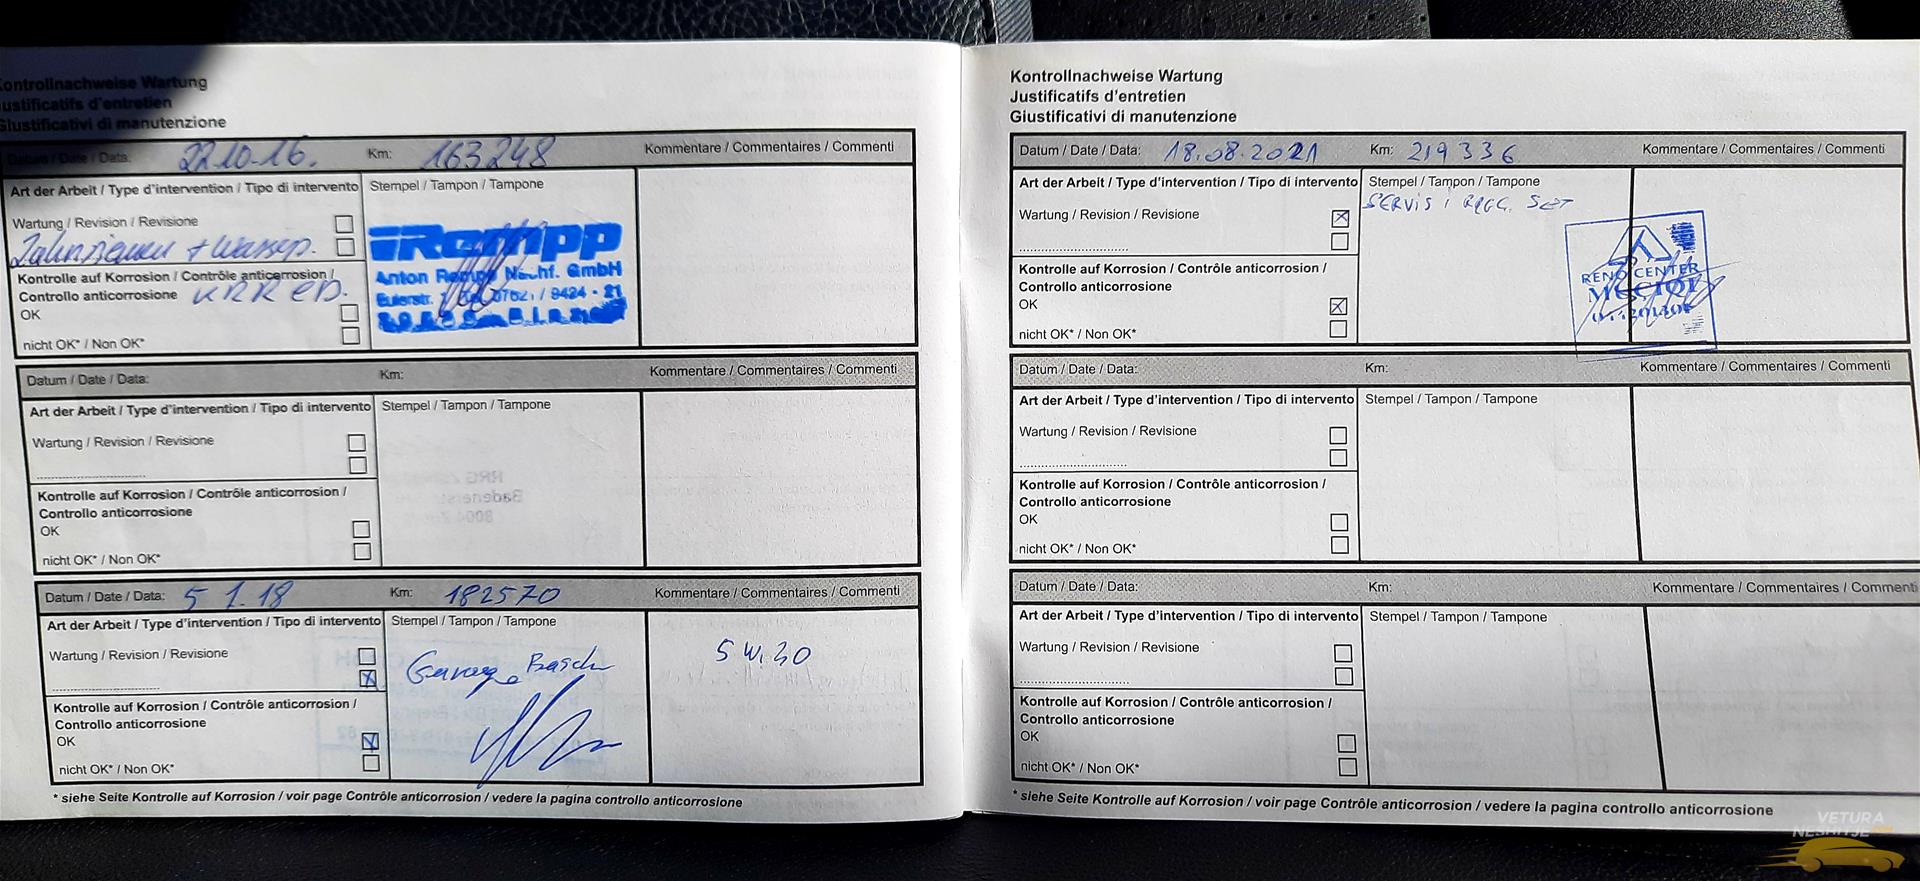 Kontrollnachweise Wartung
Justificatifs d'entretien
Giustificativi di manutenzione
Datum / Date / Data: 22.10.16. Km: 163248 Kommentare / Commentaires / Commenti
Art der Arbeit / Type d'intervention / Tipo di intervento Stempel / Tampon / Tampone
Wartung / Revision / Revisione
Zahnriemen + Wasserp.
Kontrolle auf Korrosion / Contrôle anticorrosion /
Controllo anticorrosione
OK
nicht OK* / Non OK*
Anton Rempp Nachf. GmbH
Eulerstr. 9424 - 21
Datum / Date / Data: Km: Kommentare / Commentaires / Commenti
Art der Arbeit / Type d'intervention / Tipo di intervento Stempel / Tampon / Tampone
Wartung / Revision / Revisione
Kontrolle auf Korrosion / Contrôle anticorrosion /
Controllo anticorrosione
OK
nicht OK* / Non OK*
Datum / Date / Data: 5 1.18 Km: 182570 Kommentare / Commentaires / Commenti
Art der Arbeit / Type d'intervention / Tipo di intervento Stempel / Tampon / Tampone
Wartung / Revision / Revisione
Garage 5 W. 30
Kontrolle auf Korrosion / Contrôle anticorrosion /
Controllo anticorrosione
OK
nicht OK* / Non OK*
* siehe Seite Kontrolle auf Korrosion / voir page Contrôle anticorrosion / vedere la pagina controllo anticorrosione
Kontrollnachweise Wartung
Justificatifs d'entretien
Giustificativi di manutenzione
Datum / Date / Data: 18.08.2021 Km: 219336 Kommentare / Commentaires / Commenti
Art der Arbeit / Type d'intervention / Tipo di intervento Stempel / Tampon / Tampone
SERVISI SET
Wartung / Revision / Revisione
Kontrolle auf Korrosion / Contrôle anticorrosion /
Controllo anticorrosione
OK
nicht OK* / Non OK*
RENO CENTER
Datum / Date / Data: Km: Kommentare / Commentaires / Commenti
Art der Arbeit / Type d'intervention / Tipo di intervento Stempel / Tampon / Tampone
Wartung / Revision / Revisione
Kontrolle auf Korrosion / Contrôle anticorrosion /
Controllo anticorrosione
OK
nicht OK* / Non OK*
Datum / Date / Data: Km: Kommentare / Commentaires / Commenti
Art der Arbeit / Type d'intervention / Tipo di intervento Stempel / Tampon / Tampone
Wartung / Revision / Revisione
Kontrolle auf Korrosion / Contrôle anticorrosion /
Controllo anticorrosione
OK
nicht OK* / Non OK*
* siehe Seite Kontrolle auf Korrosion / voir page Contrôle anticorrosion / vedere la pagina controllo anticorrosione
VETURA
NESHITJE